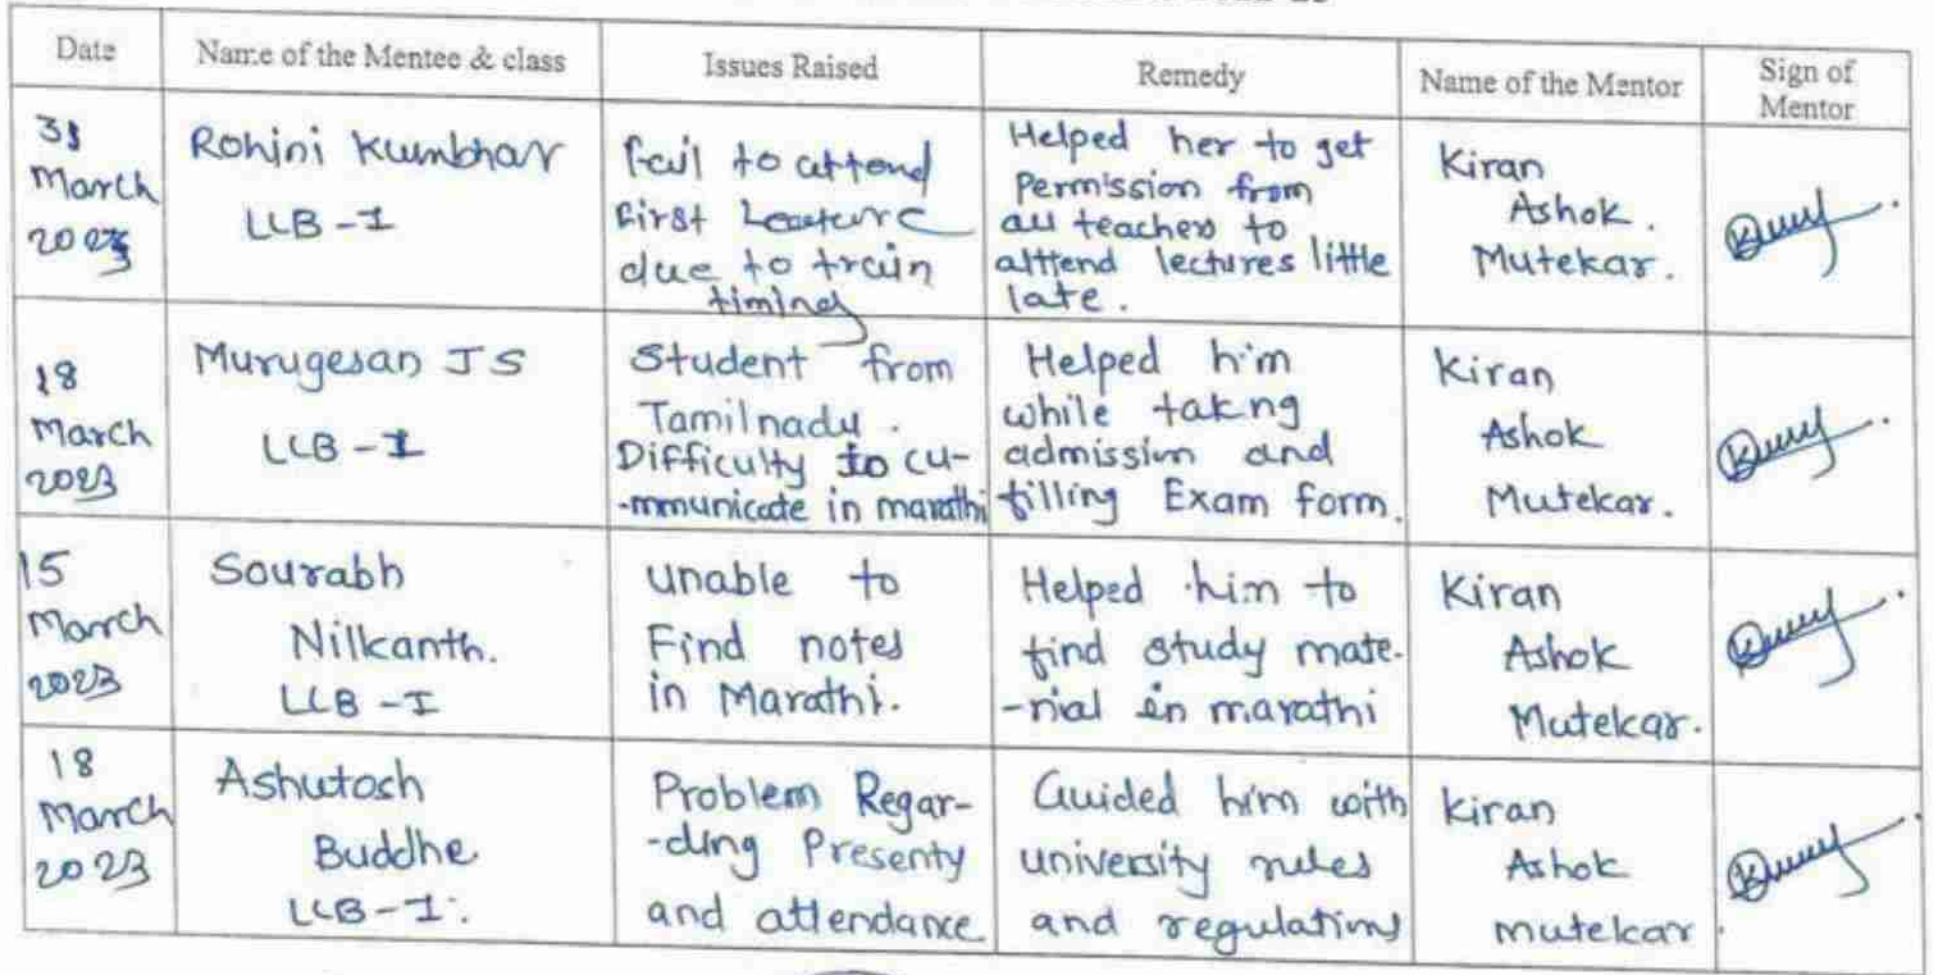 Date
Name of the Mentee & class
Issues Raised
Remedy
Name of the Mentor
Sign of
Mentor
31
March
2023
Rohini Kumbhar
LLB - I
Fail to attend
First Leacture
due to train
timing
Helped her to get
Permission from
all teachers to
alttend lectures little
late.
Kiran
Ashok.
Mutekar.
18
March
2023
Murugesan J S
LLB - I
Student from
Tamilnadu.
Difficulty to cu-
-mmunicate in marathi
Helped him
while takng
admission and
filling Exam form.
Kiran
Ashok
Mutekar.
15
March
2023
Sourabh
Nilkanth.
LLB - I
unable to
Find notes
in Marathi.
Helped him to
find study mate-
-rial in marathi
Kiran
Ashok
Mutekar.
18
March
2023
Ashutosh
Buddhe
LLB - I.
Problem Regar-
-ding Presenty
and attendance
Guided him with
university rules
and regulations
Kiran
Ashok
mutekar